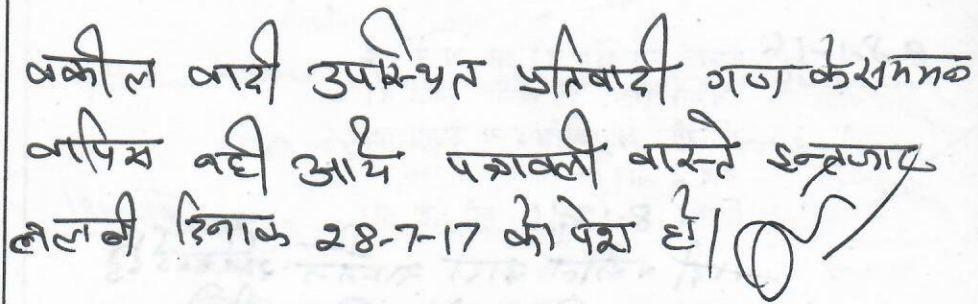 वकील वादी उपस्थित प्रतिवादी गण के सम्मन
वापिस नही आये पत्रावली वास्ते इन्तजार
तलबी दिनांक 28-7-17 को पेश हो।